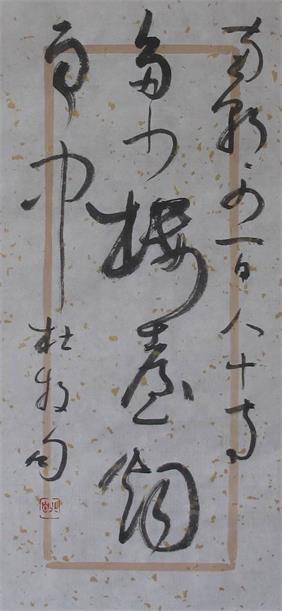 南朝四百八十寺
多少樓臺烟
雨中
杜牧句